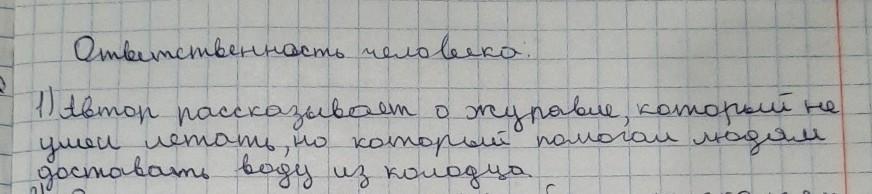 Ответственность человека.
1) Автор рассказывает о журавле, который не
умел летать, но который помогал людям
доставать воду из колодца.